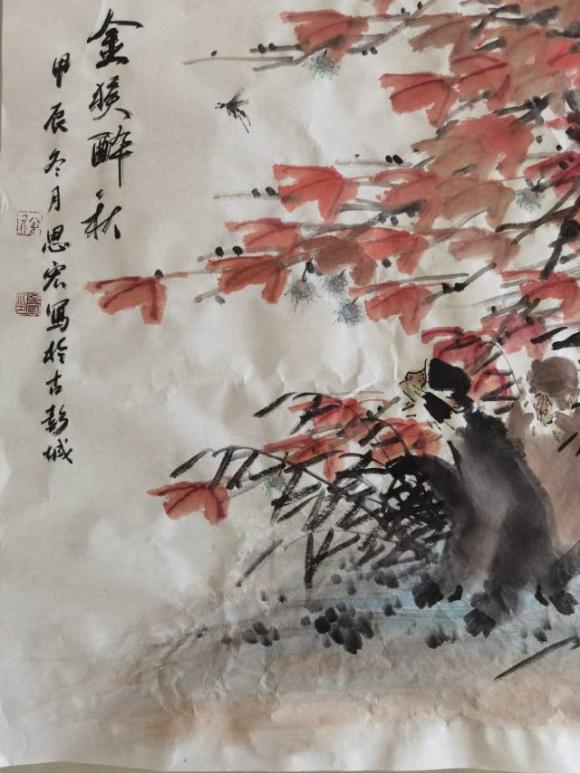 金猴醉秋
甲辰冬月思宏写於古彭城